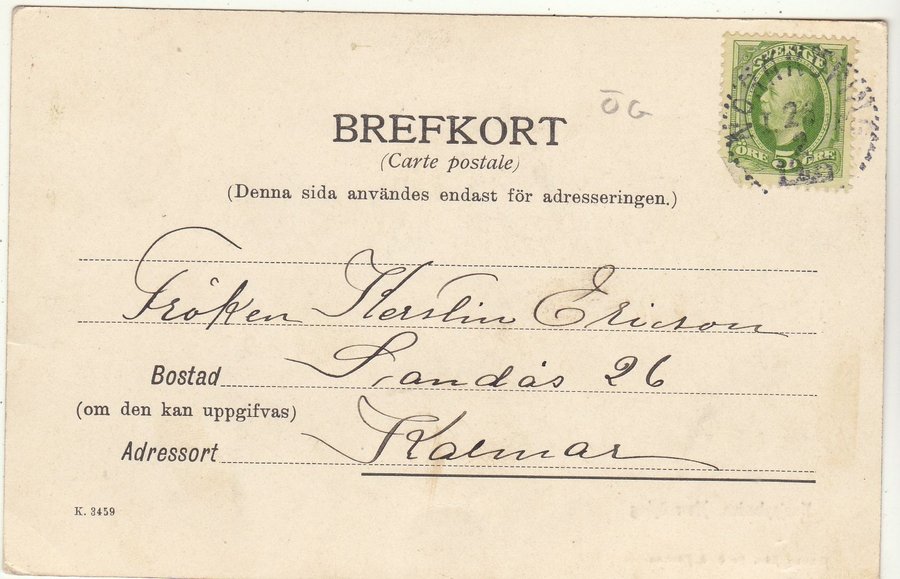 SVERIGE
ÖRE 5 ÖRE
ÖG
BREFKORT
(Carte postale)
(Denna sida användes endast för adresseringen.)
Fröken Kerstin Ericson
Bostad Sandås 26
(om den kan uppgifvas)
Adressort Kalmar
K. 3459